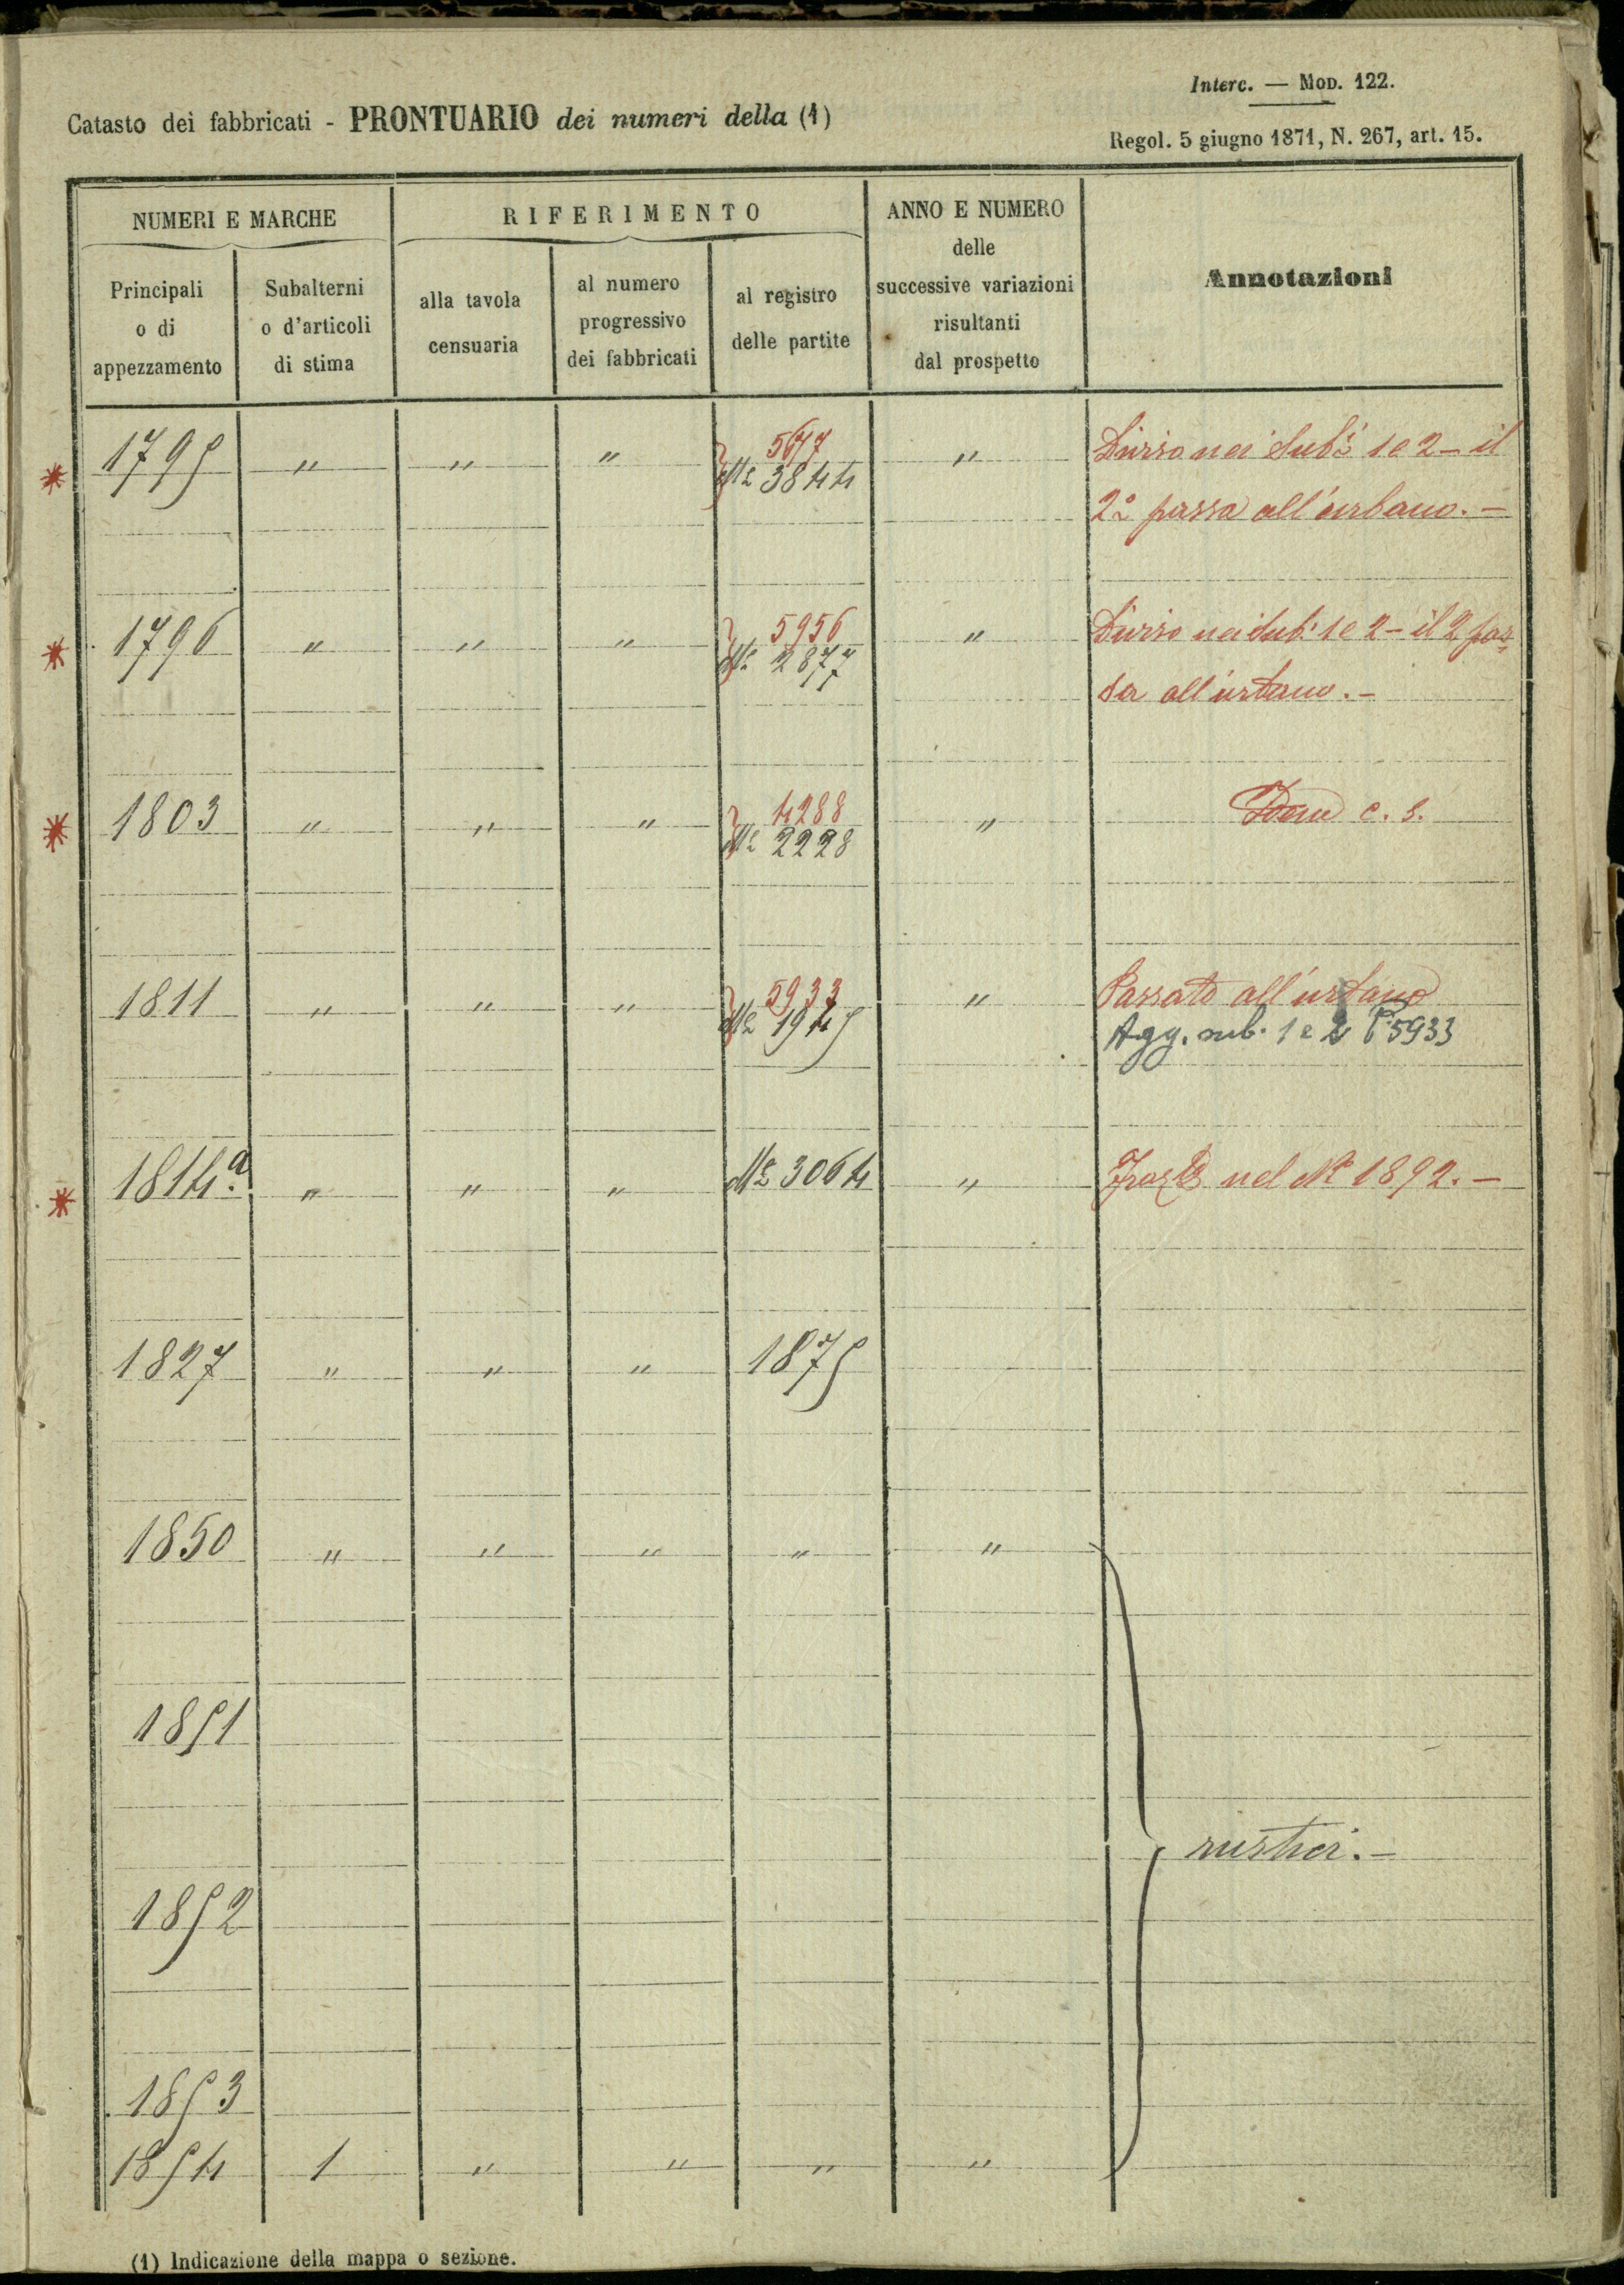 Interc. — Mod. 122.
Catasto dei fabbricati - PRONTUARIO dei numeri della (1)
Regol. 5 giugno 1871, N. 267, art. 15.
NUMERI E MARCHE
RIFERIMENTO
ANNO E NUMERO
delle
successive variazioni
risultanti
dal prospetto
Annotazioni
Principali
o di
appezzamento
Subalterni
o d'articoli
di stima
alla tavola
censuaria
al numero
progressivo
dei fabbricati
al registro
delle partite
5677
* 1795 " " " Nº 3844 " Diviso nei Subⁱ 1 e 2 – il
2º passa all'urbano. –
5956
* 1796 " " " Nº 2877 " Diviso nei Subⁱ 1 e 2 – il 2 pas
sa all'urbano. –
4288
* 1803 " " " Nº 2228 " Idem c. s.
5933
1811 " " " Nº 1945 " Passato all'urbano
Agg. sub. 1 e 2 P. 5933
* 1814.a " " " Nº 3064 " nel Nº 1892. –
1827 " " " 1875
1850 " " " " "
1851
rustici. –
1852
1853
1854 1 " " " "
(1) Indicazione della mappa o sezione.